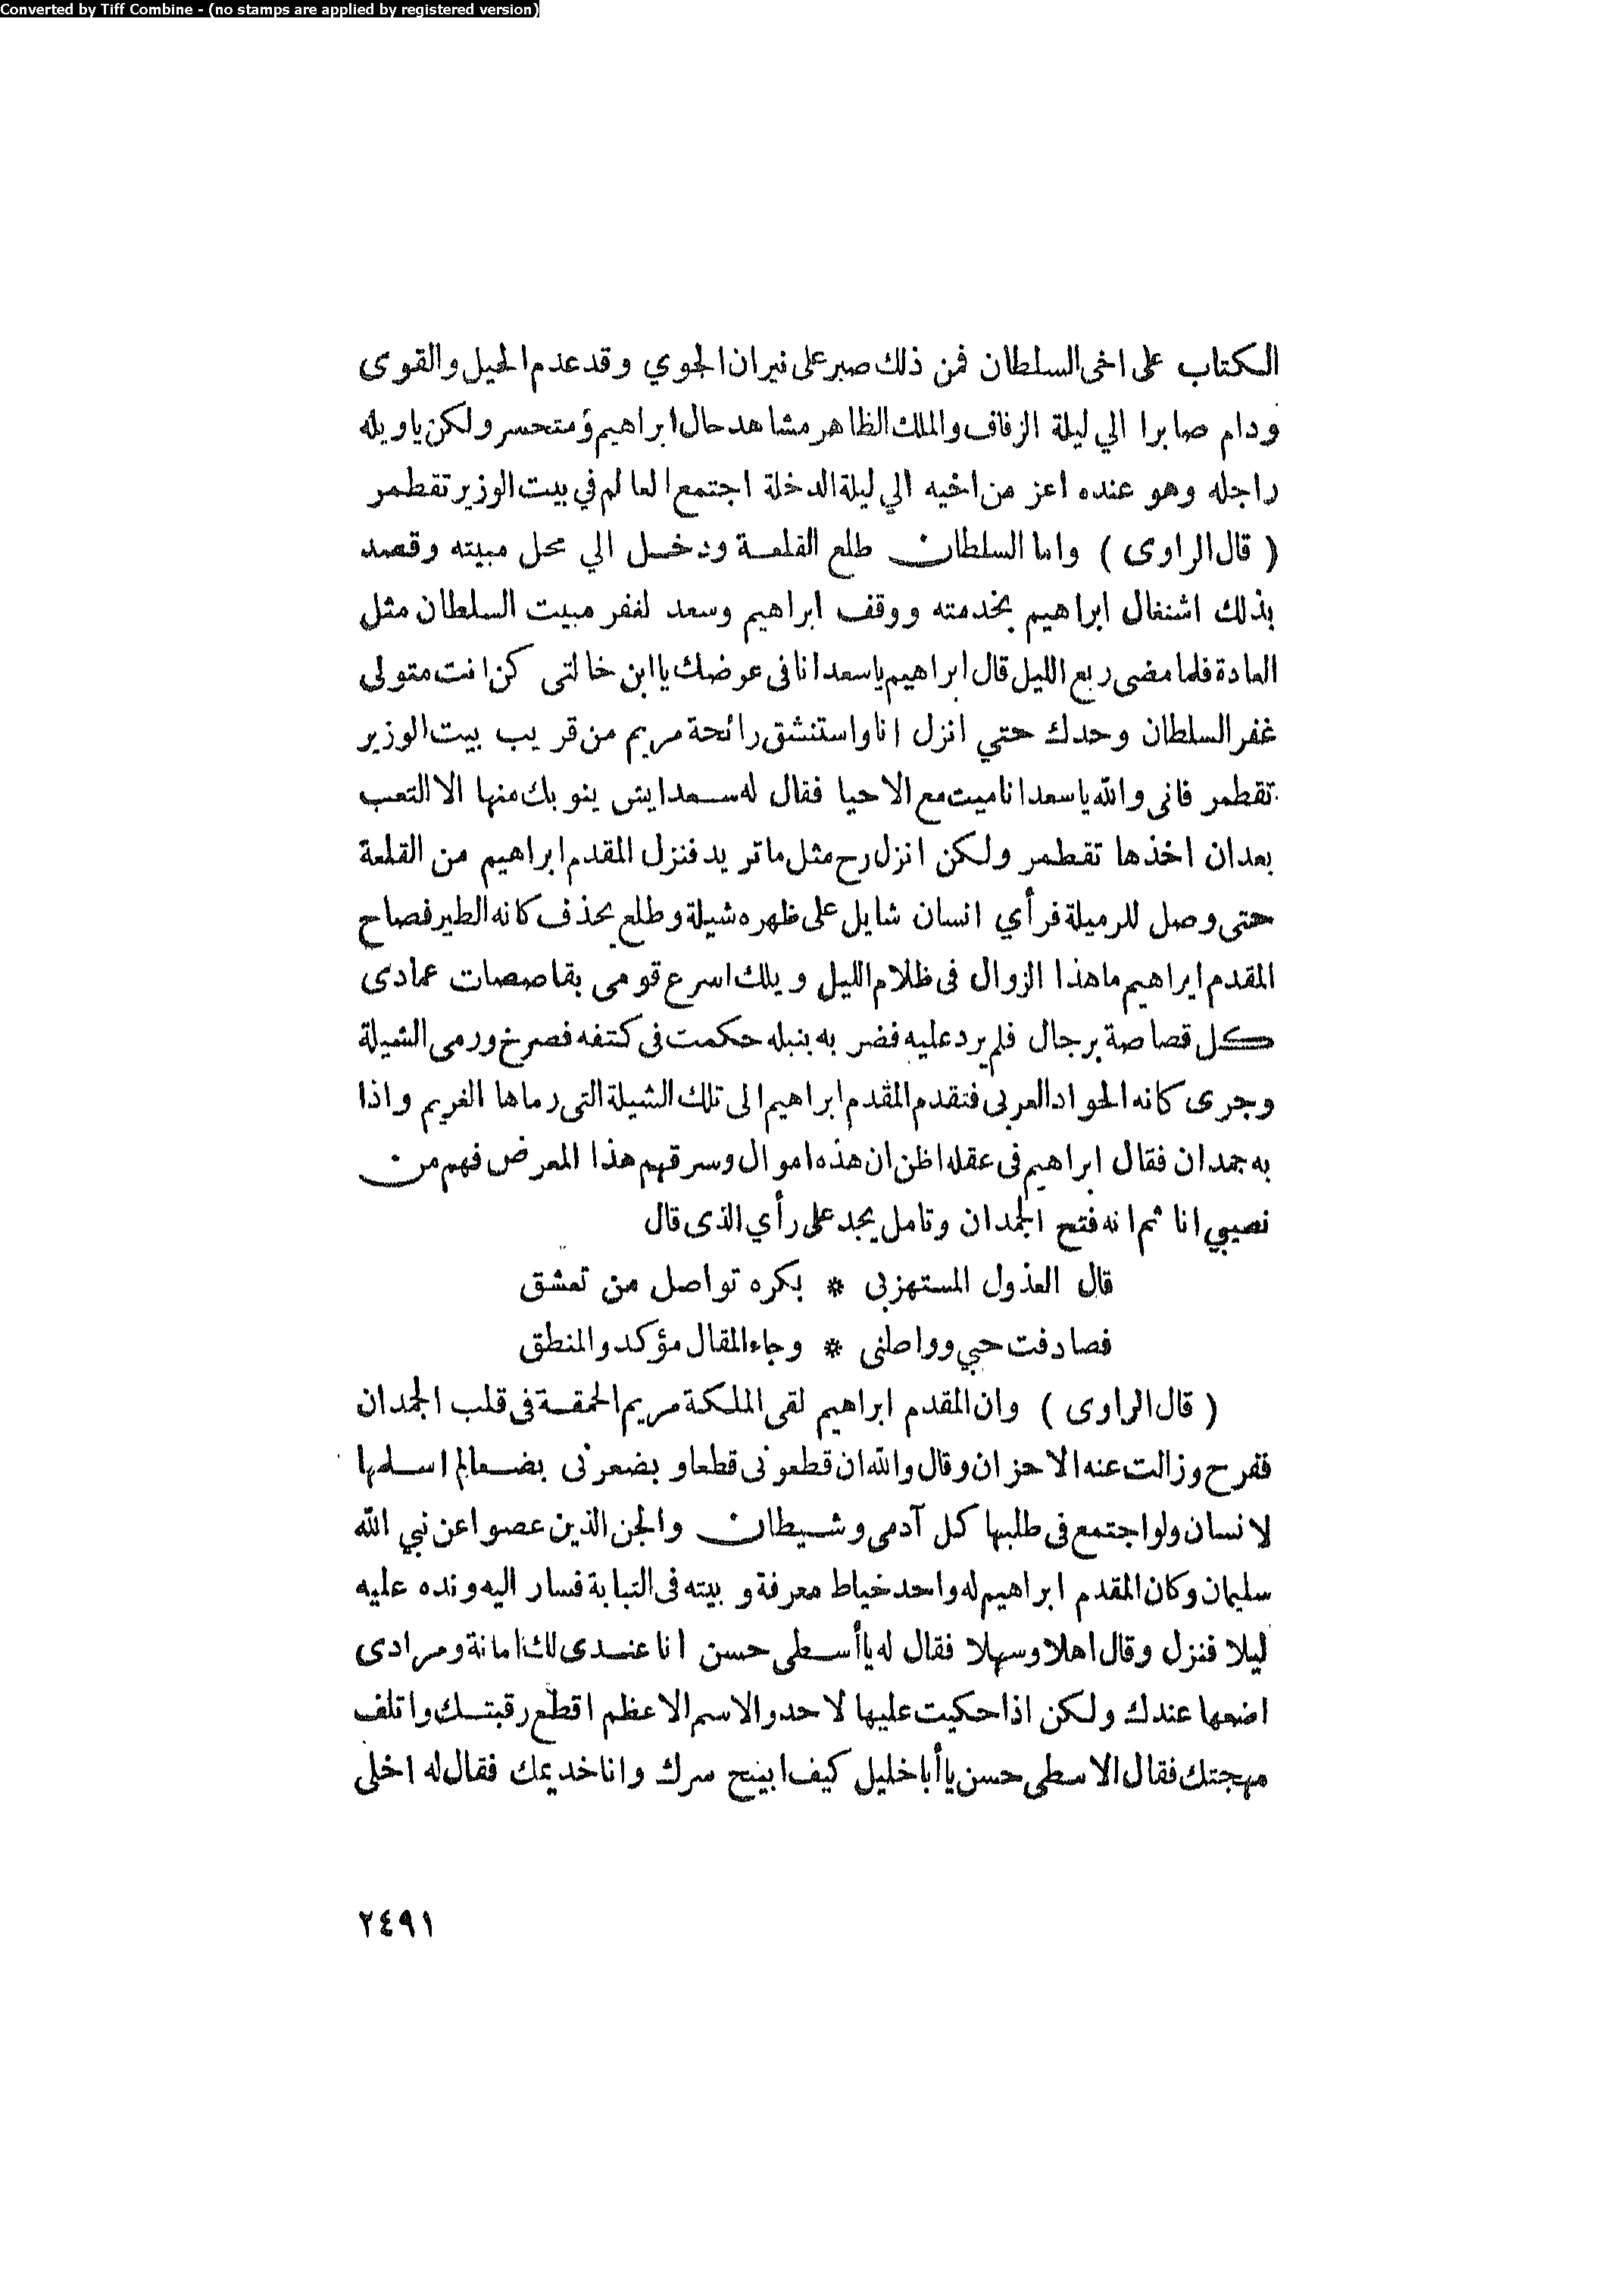 Converted by Tiff Combine - (no stamps are applied by registered version)
الكتاب على اخى السلطان فمن ذلك صبر على نيران الجوي وقد عدم الحيل والقوى
ودام صابرا الي ليلة الزفاف والملك الظاهر مشاهد حال ابراهيم ومتحسر ولكن ياويله
راجله وهو عنده اعز من اخيه الي ليلة الدخلة اجتمع العالم في بيت الوزير تقطمر
( قال الراوى ) واما السلطان طلع القلعة ودخل الي محل مبيته وقصد
بذلك اشتغال ابراهيم بخدمته ووقف ابراهيم وسعد لغفر مبيت السلطان مثل
العادة فلما مضى ربع الليل قال ابراهيم ياسعد انا فى عوضك يا ابن خالتى كن انت متولى
غفر السلطان وحدك حتي انزل انا واستنشق رائحة مريم من قريب بيت الوزير
تقطمر فانى والله ياسعد انا ميت مع الاحيا فقال له سعد ايش ينوبك منها الا التعب
بعد ان اخذها تقطمر ولكن انزل رح مثل ما تريد فنزل المقدم ابراهيم من القلعة
حتى وصل للرميلة فرأي انسان شايل على ظهره شيلة وطلع يحذف كانه الطير فصاح
المقدم ابراهيم ماهذا الزوال فى ظلام الليل ويلك اسرع قومى بقاصصات عمادى
كل قصاصة برجال فلم يرد عليه فضربه بنبله حكمت فى كتفه فصرخ ورمى الشيلة
وجرى كانه الجواد العربى فتقدم المقدم ابراهيم الى تلك الشيلة التى رماها الغريم واذا
به جمدان فقال ابراهيم فى عقله اظن ان هذه اموال وسرقهم هذا المعرض فهم من
نصيبي انا ثم انه فتح الجمدان وتامل يجد على رأي الذى قال
قال العذول المستهزبى * بكره تواصل من تعشق
فصادفت حبي وواصلنى * وجاء المقال مؤكد والمنطق
( قال الراوى ) وان المقدم ابراهيم لقى الملكة مريم الحمقة فى قلب الجمدان
ففرح وزالت عنه الاحزان وقال والله ان قطعونى قطعا وبضعونى بضعا لم اسلمها
لانسان ولو اجتمع فى طلبها كل آدمى وشيطان والجن الذين عصوا عن نبي الله
سليمان وكان المقدم ابراهيم له واحد خياط معرفة وبيته فى التبابة فسار اليه ونده عليه
ليلا فنزل وقال اهلا وسهلا فقال له يا أسطى حسن انا عندى لك امانة ومرادى
اضعها عندك ولكن اذا حكيت عليها لاحد والاسم الاعظم اقطع رقبتك واتلف
مهجتك فقال الاسطى حسن يا أبا خليل كيف ابيح سرك وانا خديمك فقال له اخلى
٢٤٩١